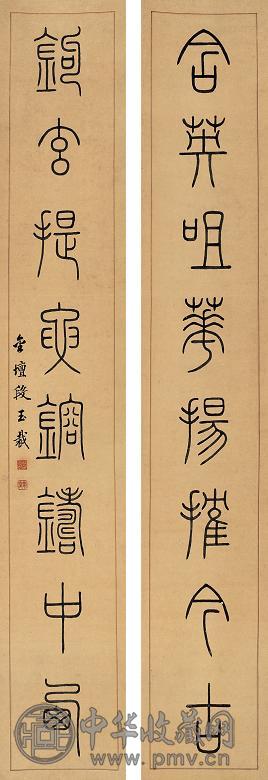 含英咀華揚搉今古
鉤玄提要鎔鑄中
金壇段玉裁
中华收藏网
www.pmv.cn